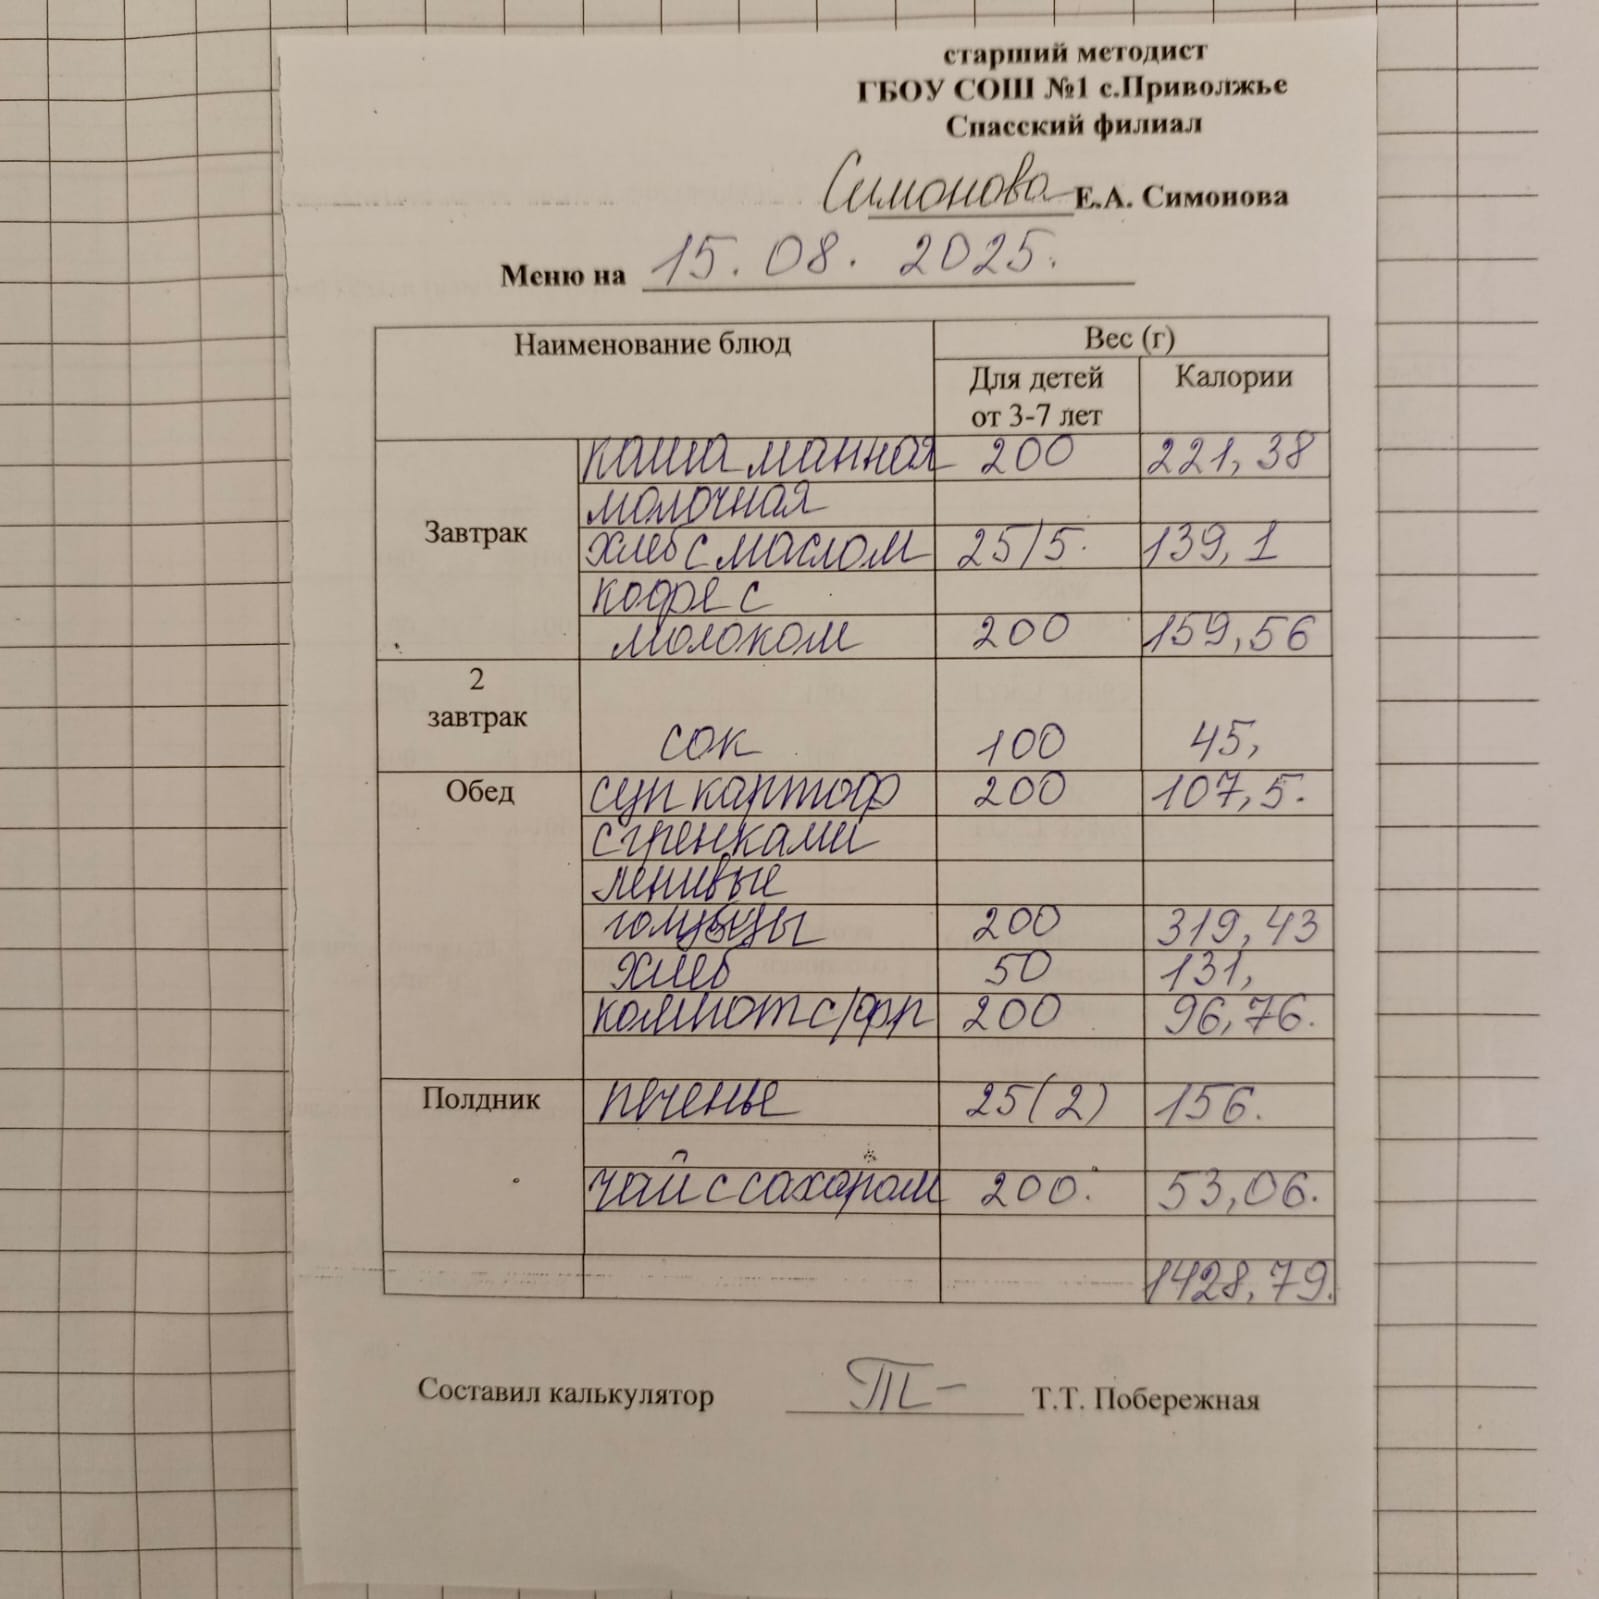 старший методист
ГБОУ СОШ №1 с.Приволжье
Спасский филиал
Симонова Е.А. Симонова
Меню на 15.08.2025.
Наименование блюд Вес (г)
Для детей от 3-7 лет Калории
Завтрак каша манная 200 221,38
молочная
хлеб с маслом 25/5. 139,1
кофе с
молоком 200 159,56
2 завтрак сок 100 45,
Обед суп картоф 200 107,5.
с гренками
ленивые
голубцы 200 319,43
хлеб 50 131,
компот с/фр 200 96,76.
Полдник печенье 25(2) 156.
чай с сахаром 200. 53,06.
1428,79.
Составил калькулятор Т Т.Т. Побережная